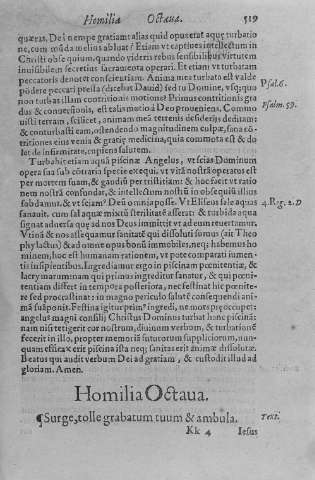 Homilia Octaua. 519
quæras. Dei nempe gratiam alias quid opus erat aquæ turbatio
ne, cum tosda melius abluat? Etiam vt captiues intellectum in
Christi obsequium, quando videris rebus sensibilibus Virtutem
inuisibilem secretius sacramenta operari. Et etiam vt turbatam
peccatoris denotet conscientiam. Anima mea turbata est valde
podere peccati pressa (dicebat Dauid) sed tu Domine, vsquequo Psal.6.
non turbas illam contritionis motione? Primus contritionis gra
dus & conuersionis, est talis motio à Deo proueniens. Commo Psalm.59.
uisti terram, scilicet, animam meã terrenis desiderijs deditam
& conturbasti eam, ostendendo magnitudinem culpæ, sana cõ-
tritiones eius venia & gratiæ medicina, quia commota est & do
let de infirmitate, cupiens salutem.
Turbabit etiam aquã piscinæ Angelus, vt scias Dominum
opera sua sub cõtraria specie exequi. vt vitã nostrã operatus est
per mortem suam, & gaudiũ per tristitiam: & hoc facit vt ratio
nem nostrã confundat, & intellectum nostrũ in obsequiũ illius
subdamus. & vt sciam⁹ Deũ omnia posse. Vt Eliseus sale aquas 4.Reg.2.D
sanauit. cum sal aquæ mixtũ sterilitatẽ afferat: & turbida aqua
signat aduersa quæ ad nos Deus immittit vt ad eum reuertamur.
Vtinã & nos aliquãdo veniamus sanitatẽ qui dissoluti sumus (ait Theo
phylactus) & ad omne opus bonũ immobiles, neq; habemus ho
minem, hoc est humanam rationem, vt pote comparati iumen-
tis insipientibus. Ingrediamur ergo in piscinam pœnitentiæ, &
lacrymarum nam qui primus ingreditur sanatur, & qui pœni-
tentiam differt in tempora posteriora, nec festinat hic pœnite-
re sed procrastinat: in magno periculo salutẽ consequendi ani-
mã suã ponit. Festina igitur prim⁹ ingredi, ne mors præoccupet:
angelus magni consilij Christus Dominus turbat hanc piscinã:
nam nisi tetigerit cor nostrum, diuinum verbum, & turbationẽ
fecerit in illo, propter memoriã suturorum suppliciorum, nun-
quam efficax erit piscina ista neq; sanitas erit animæ dissolutæ.
Beatus qui audit verbum Dei ad gratiam, & custodit illud ad
gloriam. Amen.
Homilia Octaua.
¶Surge, tolle grabatum tuum & ambula. Text.
Kk 4 Iesus